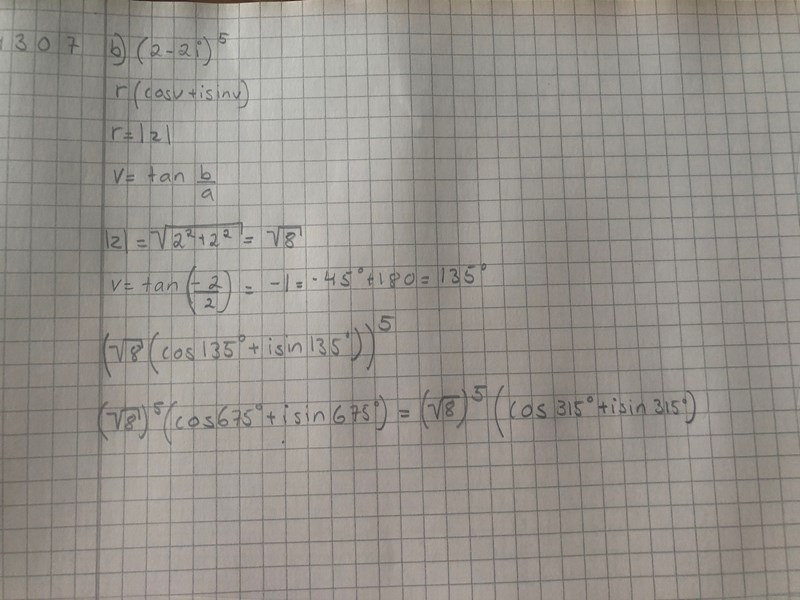 1307 b) (2-2i)^5
r(cosv+isinv)
r=|z|
v= tan b/a
|z| = √(2²+2²) = √8
v= tan (-2/2) = -1 = -45°+180 = 135°
(√8 (cos 135°+ isin 135°))^5
(√8)^5 (cos 675°+ isin 675°) = (√8)^5 (cos 315°+isin 315°)